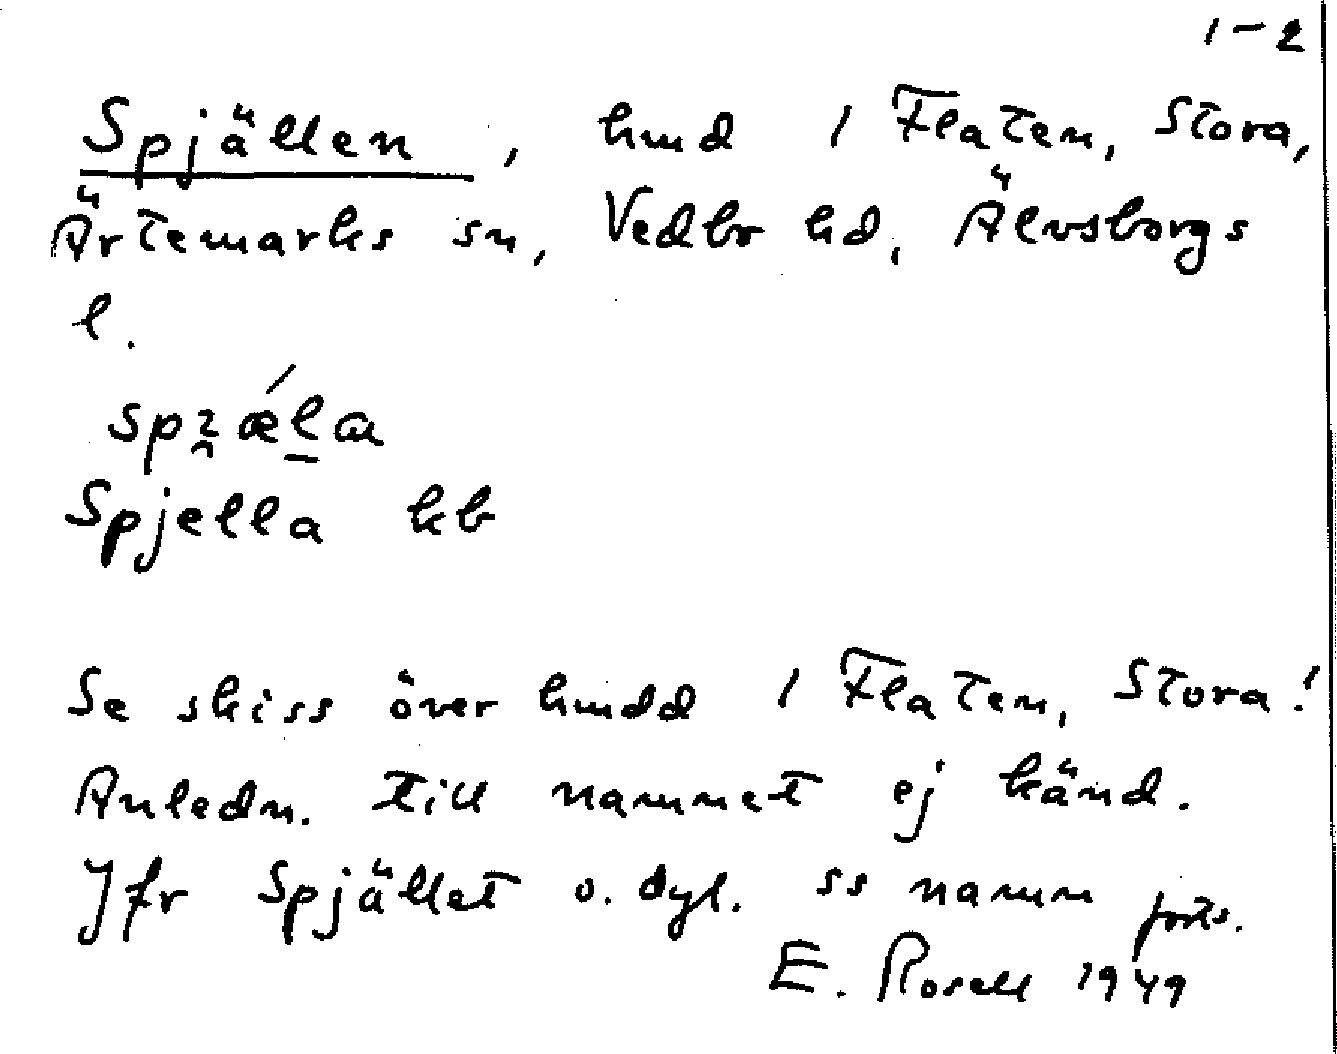 1-2
Spjällen, hmd i Flaten, Stora,
Ärtemarks sn, Vedbo hd, Älvsborgs
l.
Spjella kb
Se skiss över hmdd i Flaten, Stora!
Anledn. till namnet ej känd.
Jfr Spjället o. dyl. ss namn forts.
E. Rosell 1949